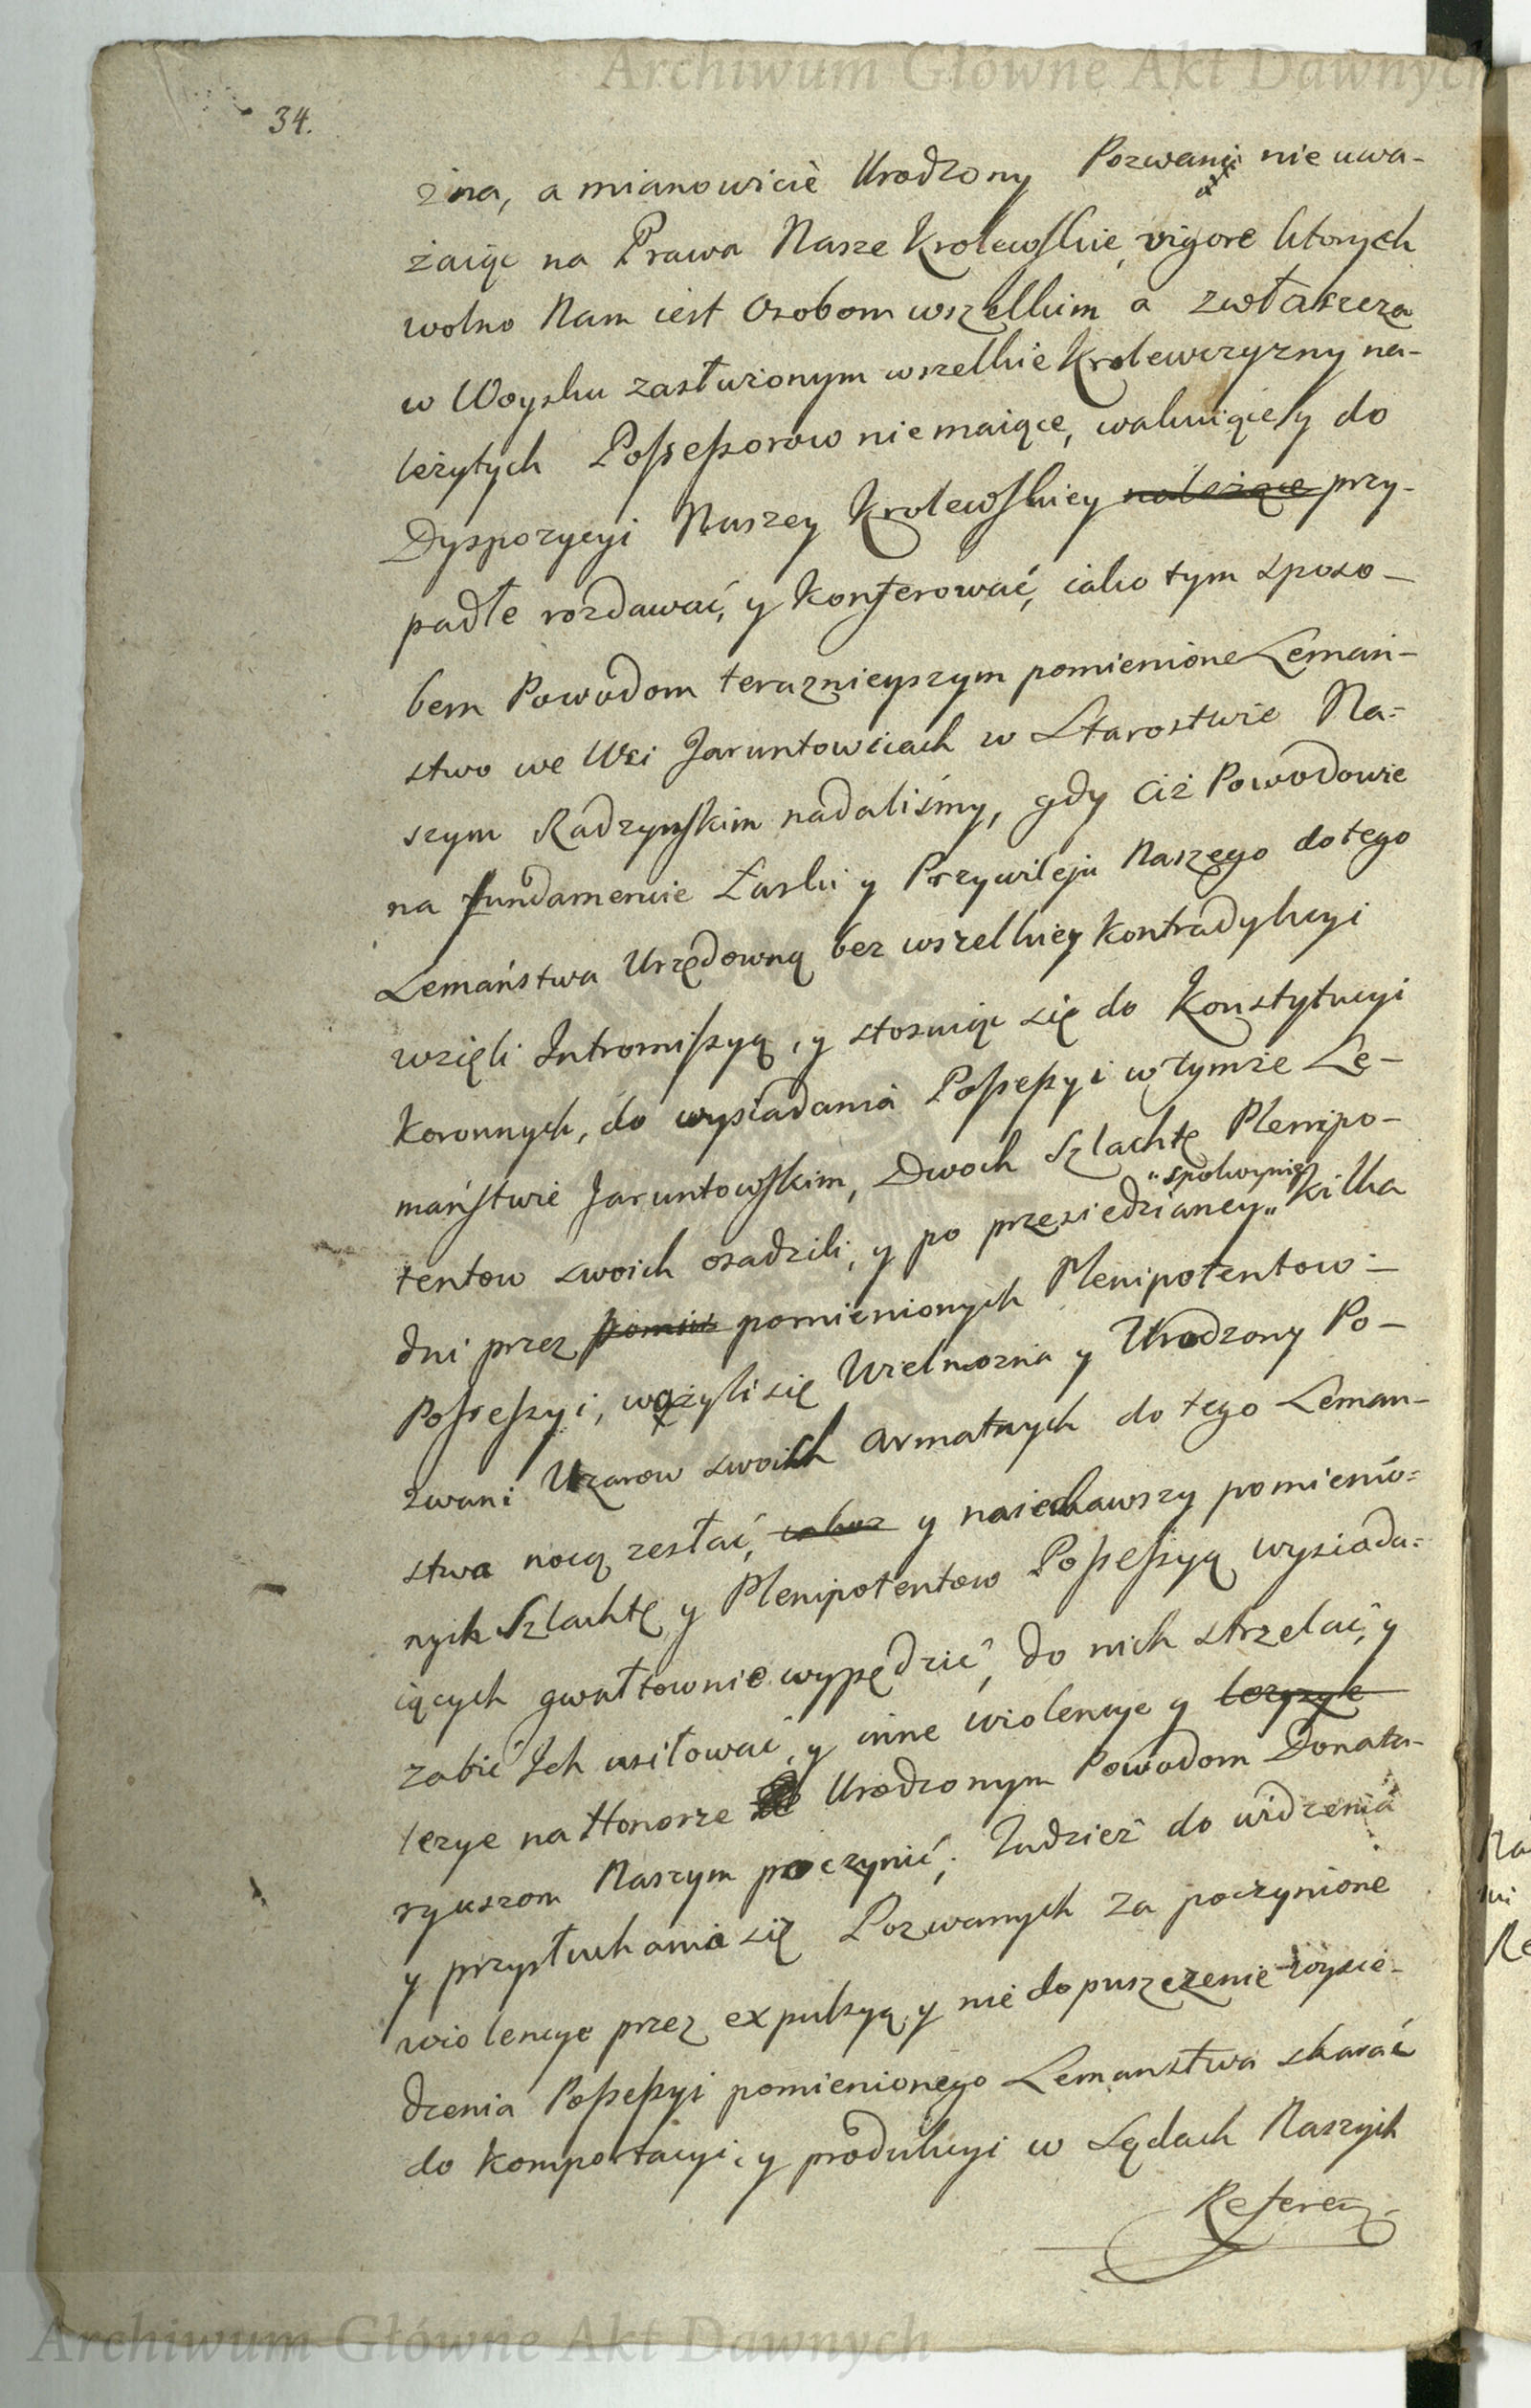 Archiwum Główne Akt Dawnych
34.
zna, a mianowicie Urodzony Pozwani nie uwa-
żaiąc na Prawa Nasze Krolewskie, vigore ktorych
wolno Nam iest Osobom wszelkim a zwłaszcza
w Woysku zasłużonym wszelkie Krolewszczyzny na-
leżytych Possessorow nie maiące, wakuiące y do
Dyspozycyi Naszey Krolewskiey należące przy-
padłe rozdawać, y konferować, iako tym sposo-
bem Powodom teraznieyszym pomienione Lemań-
stwo we Wsi Jaruntowicach w Starostwie Na=
szym Radzynskim nadaliśmy, gdy Ciż Powodowie
na fundamencie Łaski y Przywileju Naszego do tego
Lemaństwa Urzędowną bez wszelkiey kontradykcyi
wzięli Intromissyą, y stosuiąc się do Konstytucyi
Koronnych, do wysiadania Possessyi w tymże Le-
maństwie Jaruntowskim, Dwoch Szlachtę Plenipo-
tentow swoich osadzili, y po przesiedzianey „spokoynie„ kilka
dni przez pomienionych Plenipotentow
Possessyi, ważyli się Wielmozna y Urodzony Po-
zwani Uzarow swoich armatnych do tego Leman-
stwa nocą zesłać, y naiechawszy pomienio=
nych Szlachtę y Plenipotentow Possessyą wysiada=
iących gwałtownie wypędzić, do nich strzelać, y
zabić Ich usiłować, y inne wiolencye y
lezye na Honorze Urodzonym Powodom Donata-
ryuszom Naszym poczynić; Tudzież do widzenia
y przysłuchania się Pozwanych za poczynione
wiolencye przez expulsyą y nie dopuszczenie wysie-
dzenia Possessyi pomienionego Lemanstwa skarać
do komportacyi, y produkcyi w Sądach Naszych
Referen-
Archiwum Główne Akt Dawnych